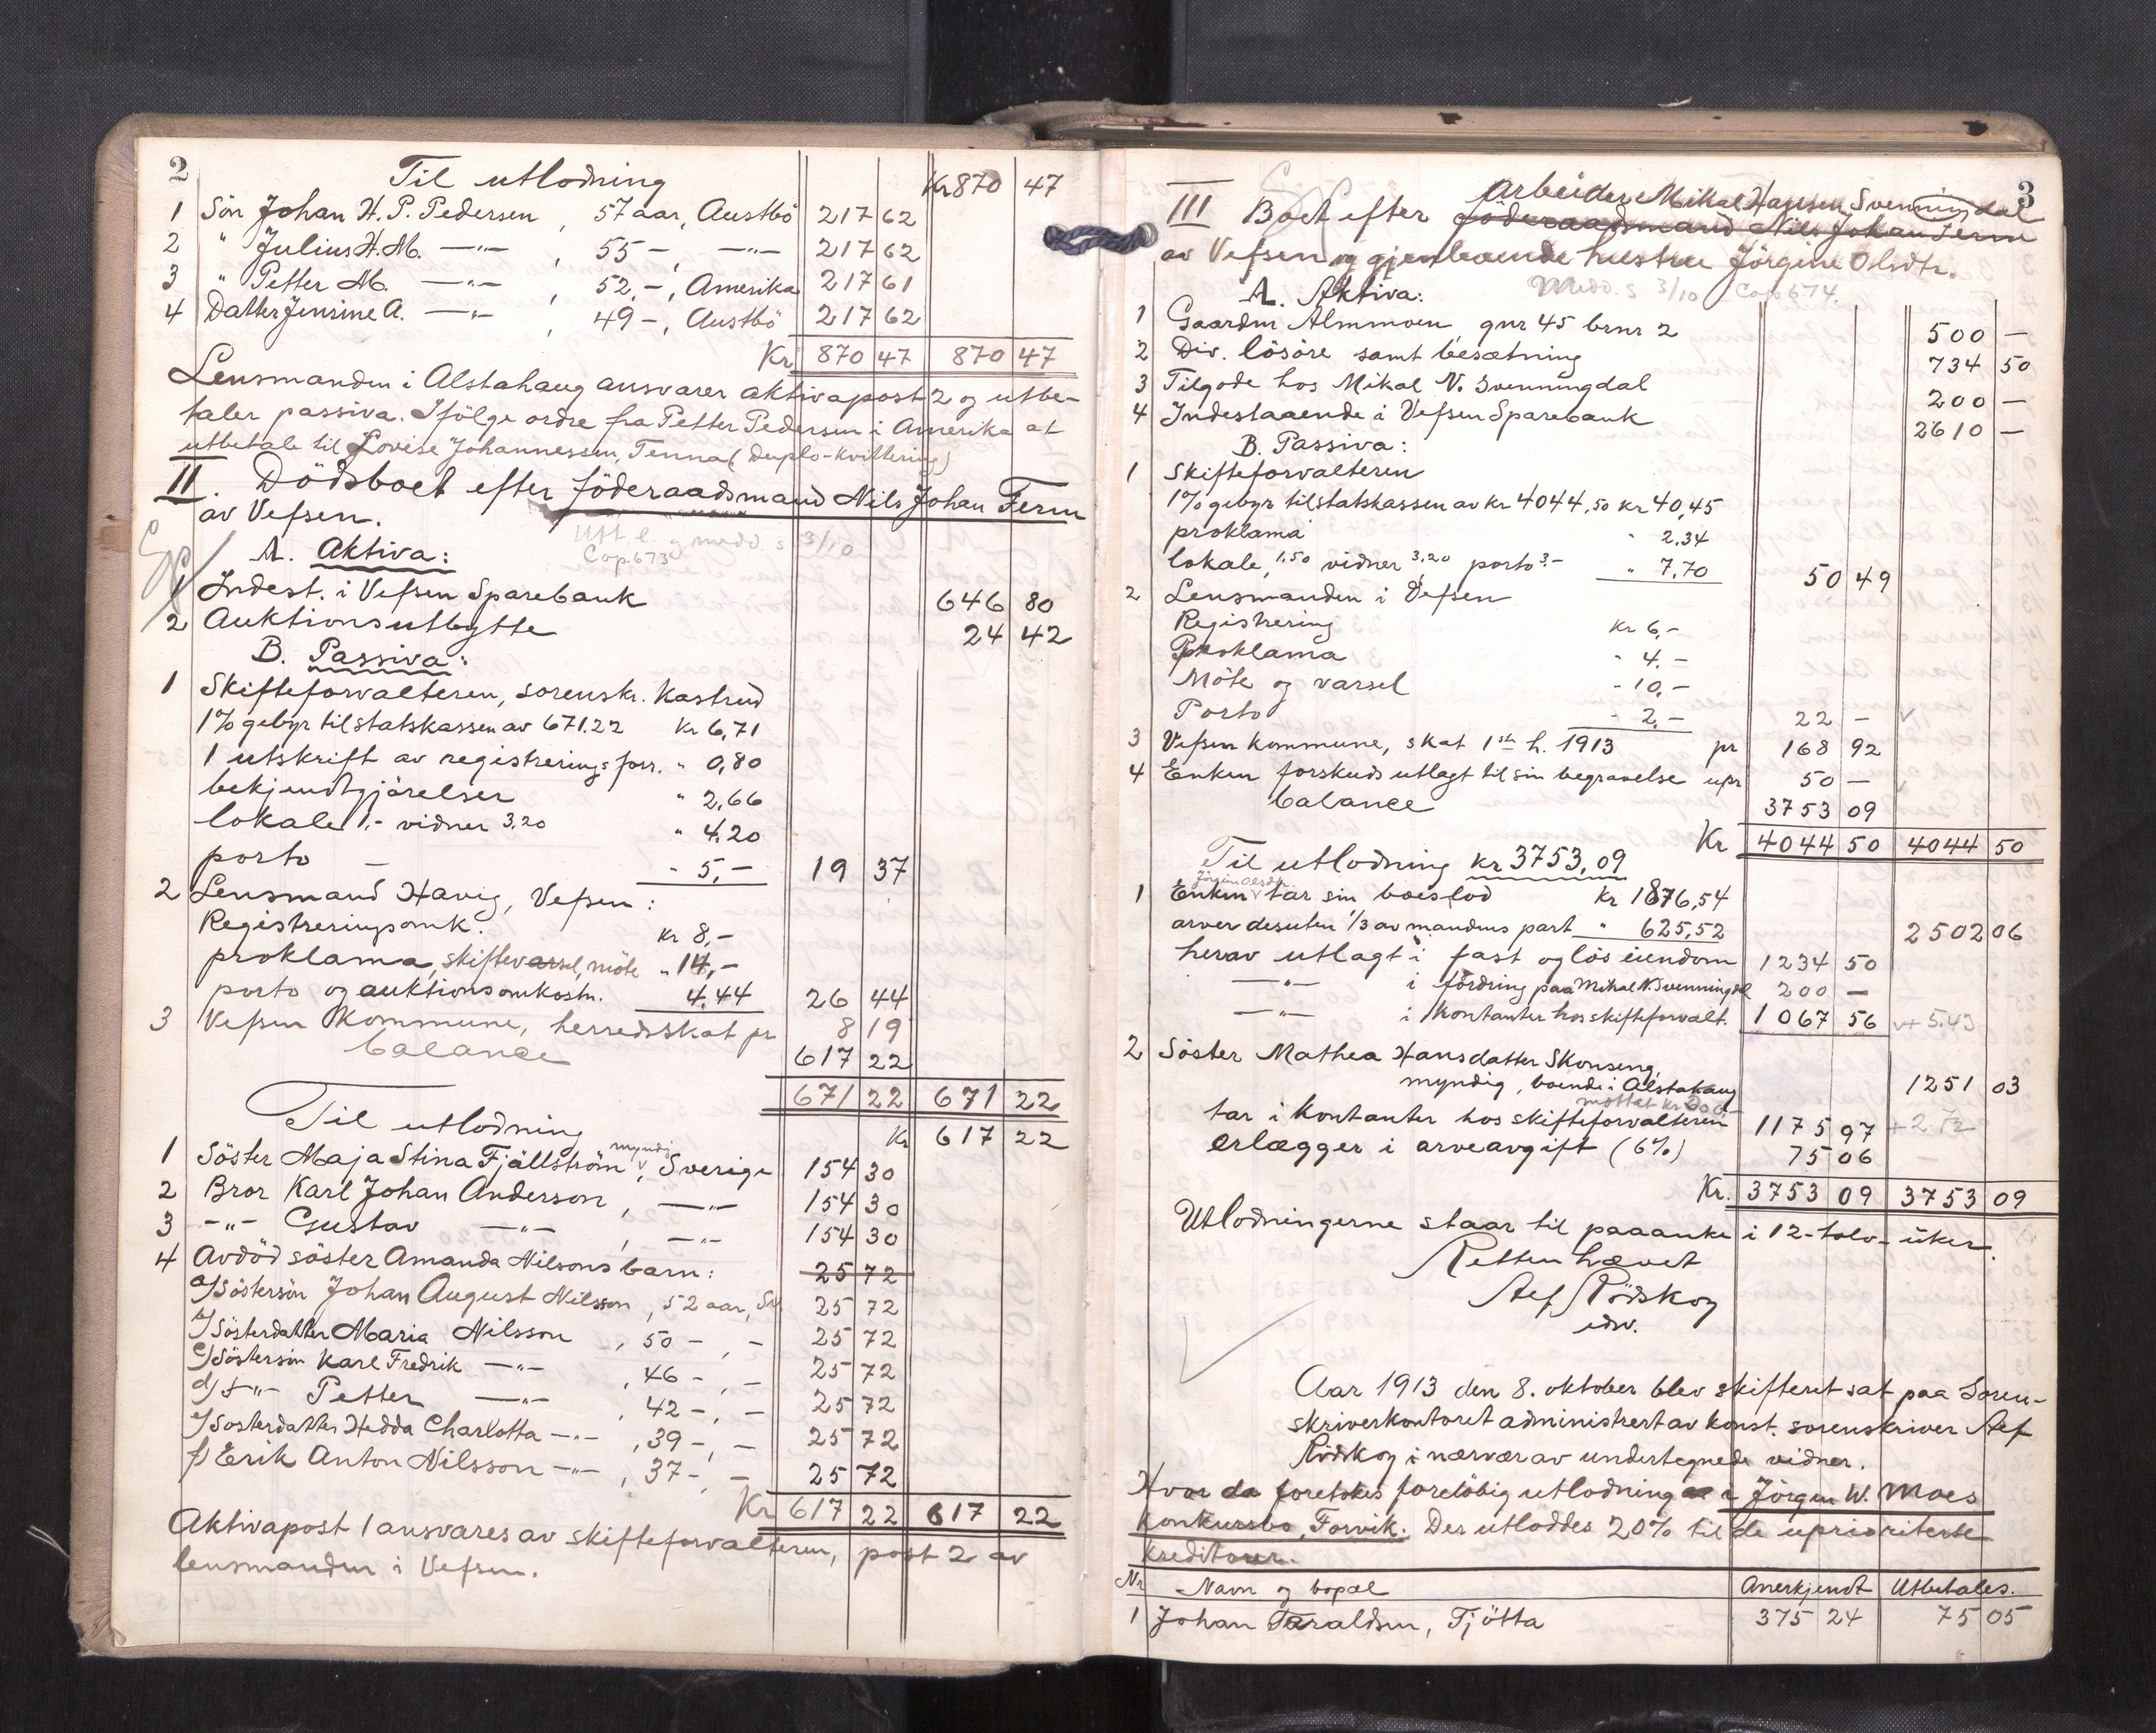 2
Til utlodning Kr 870 47
1 Sön Johan H. P. Pedersen, 57 aar, Austbö 217 62
2 " Julius H. M. —"—, 55 —, —"— 217 62
3 " Petter M. —"—, 52 —, Amerika 217 61
4 Datter Jensine A. —"—, 49 —, Austbö 217 62
Kr 870 47 870 47
Lensmanden i Alstahaug ansvarer aktivapost 2 og utbe-
taler passiva. Ifölge ordre fra Petter Pedersen i Amerika at
utbetale til Lovise Johannessen, Tenna (duplo-kvittering)
II. Dödsboet efter föderaadsmand Nils Johan Ferm
av Vefsen.
og medd s 3/10
Cop. 673
A. Aktiva:
1 Indest. i Vefsen Sparebank 646 80
2 Auktionsutbytte 24 42
B. Passiva:
1 Skifteforvalteren, sorenskr. Kastrud
1% gebyr til statskassen av 671.22 Kr 6,71
1 utskrift av registreringsforr. " 0,80
bekjendtgjörelser " 2,66
lokale 1,- vidner 3.20 " 4.20
porto — - 5,— 19 37
2 Lensmand Havig, Vefsen:
Registreringsomk. kr 8,-
proklama, skiftevarsel, möte " 14,-
porto og auktionsomkostn. 4.44 26 44
3 Vefsen kommune, herredsskat pr 8 19
balance 617 22
671 22 671 22
Til utlodning Kr 617 22
1 Söster Maja Stina Fjällström myndig, Sverige 154 30
2 Bror Karl Johan Anderson, —"— 154 30
3 -"- Gustav —"—, —"— 154 30
4 Avdöd söster Amanda Nilsons barn: 25 72
a/ Söstersön Johan August Nilsson, 52 aar, Sv 25 72
b/ Sösterdatter Maria Nilsson, 50 —, — 25 72
c/ Söstersön Karl Fredrik —"—, 46 —, — 25 72
d/ -"- Petter —"—, 42 —, — 25 72
e/ Sösterdatter Hedda Charlotta —"—, 39 —, — 25 72
f/ Erik Anton Nilsson —"—, 37 -, — 25 72
Kr 617 22 617 22
Aktivapost 1 ansvares av skifteforvalteren, post 2 av
lensmanden i Vefsen.
3
Arbeider Mikal Hansen Svenningdal
III Boet efter föderaadsmand Nils Johan Ferm
av Vefsen og gjenlevende hustru Jörgine Olsdtr.
Medd. s 3/10 Cop 674.
A. Aktiva:
1 Gaarden Almmoen gnr 45 brnr 2 500 —
2 Div. lösöre samt besætning 734 50
3 Tilgode hos Mikal N. Svenningdal 200 —
4 Indestaaende i Vefsen Sparebank 2610 —
B. Passiva:
1 Skifteforvalteren
1% gebyr til statskassen av kr 4044,50 kr 40,45
proklama " 2.34
lokale 1,50 vidner 3,20 porto 3.- " 7,70 50 49
2 Lensmanden i Vefsen
Registrering kr 6,-
Proklama " 4.-
Möte og varsel - 10,-
Porto - 2,- 22 —
3 Vefsen kommune, skat 1ste h. 1913 pr 168 92
4 Enken forskuds utlagt til sin begravelse upr 50 —
balance 3753 09
Kr 4044 50 4044 50
Til utlodning kr 3753,09
Jörgine Olsdtr
1 Enken tar sin boeslod kr 1876,54
arver desuten 1/3 av mandens part " 625,52 2502 06
herav utlagt i fast og lös eiendom 1234 50
—"— i fordring paa Mikal N. Svenningdal 200 —
—"— i kontanter hos skifteforvalt. 1067 56 + 5.43
2 Söster Mathea Hansdatter Skonseng,
myndig, boende i Alstahaug 1251 03
mottat kr
tar i kontanter hos skifteforvalteren 1175 97 + 2.72
erlægger i arveavgift (6%) 75 06
Kr. 3753 09 3753 09
Utlodningerne staar til paaanke i 12-tolv- uker.
Retten hævet
Alf Rödskog
edv.
Aar 1913 den 8. oktober blev skifteret sat paa Soren-
skriverkontoret administrert av konst. sorenskriver Alf
Rödskog i nærvær av undertegnede vidner.
Hvor da foretokes foreløbig utlodning i Jörgen W. Moes
konkursbo, Forvik. Der utloddes 20% til de uprioriterte
kreditorer.
Nr Navn og bopæl Anerkjendt Utbetales.
1 Johan Taraldsen, Tjötta 375 24 75 05